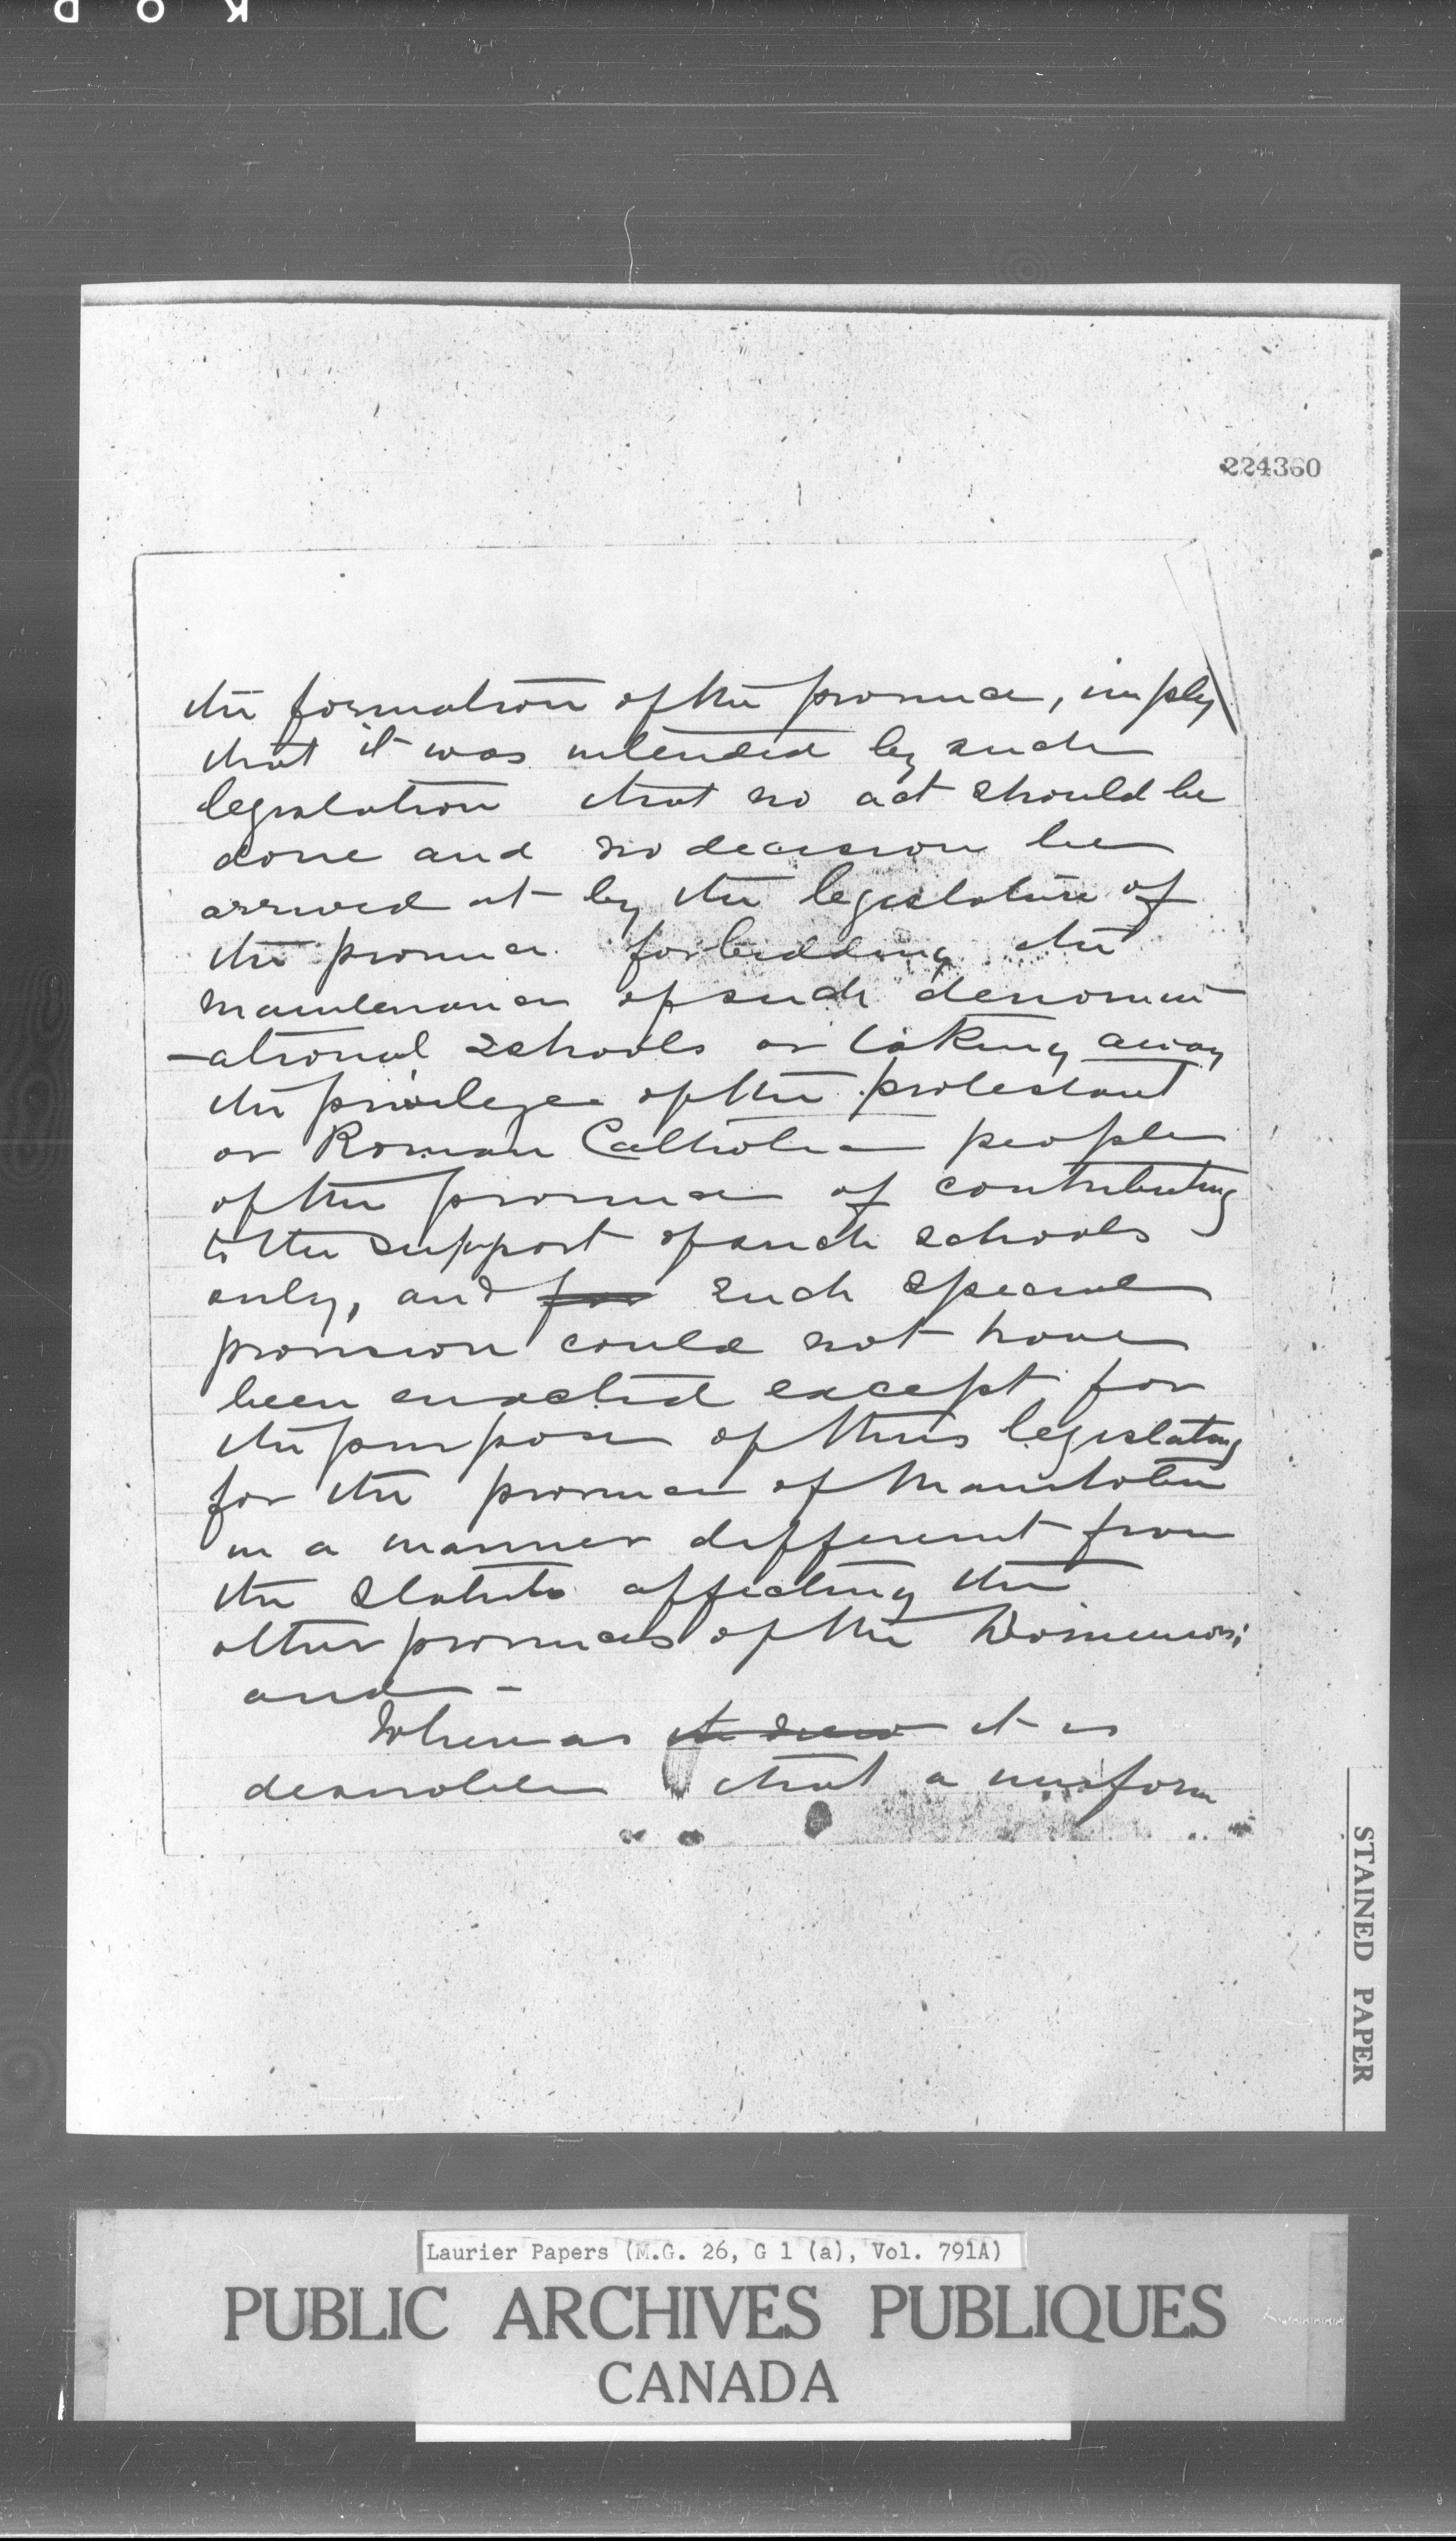 KOD
224360
the formation of the province, imply
that it was intended by such
legislation that no act should be
done and no decision be
arrived at by the legislature of
the province forbidding the
maintenance of such denomin
-ational schools or taking away
the privilege of the protestant
or Roman Catholic people
of the province of contributing
to the support of such schools
only, and for such special
provision could not have
been enacted except for
the purpose of thus legislating
for the province of Manitoba
in a manner different from
the statute affecting the
other provinces of the Dominion;
and -
Whereas it is
desirable that a uniform
STAINED PAPER
Laurier Papers (M.G. 26, G 1 (a), Vol. 791A)
PUBLIC ARCHIVES PUBLIQUES
CANADA